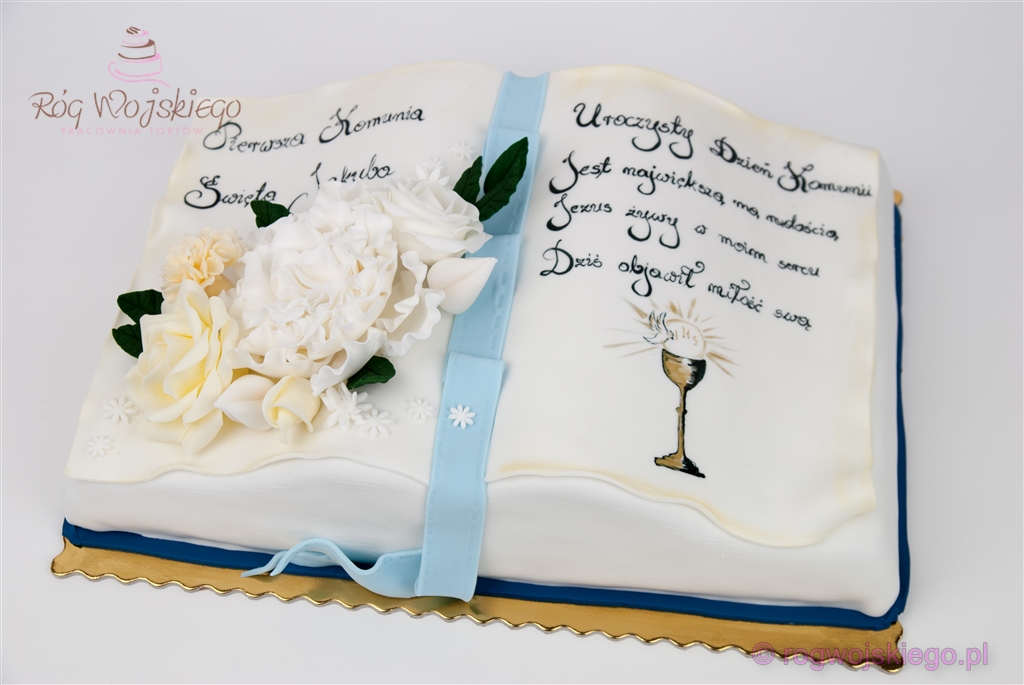 Róg Wojskiego
PRACOWNIA TORTÓW
Pierwsza Komunia
Święta Jakuba
Uroczysty Dzień Komunii
Jest największą mą radością,
Jezus żywy w moim sercu
Dziś objawił miłość swą
IHS
© rogwojskiego.pl